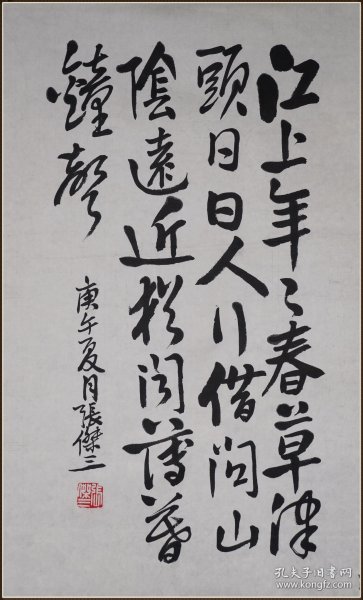 江上年々春草津
頭日日人行借問山
陰遠近猶聞薄暮
鐘聲
庚午夏月張傑三
孔夫子旧书网
www.kongfz.com